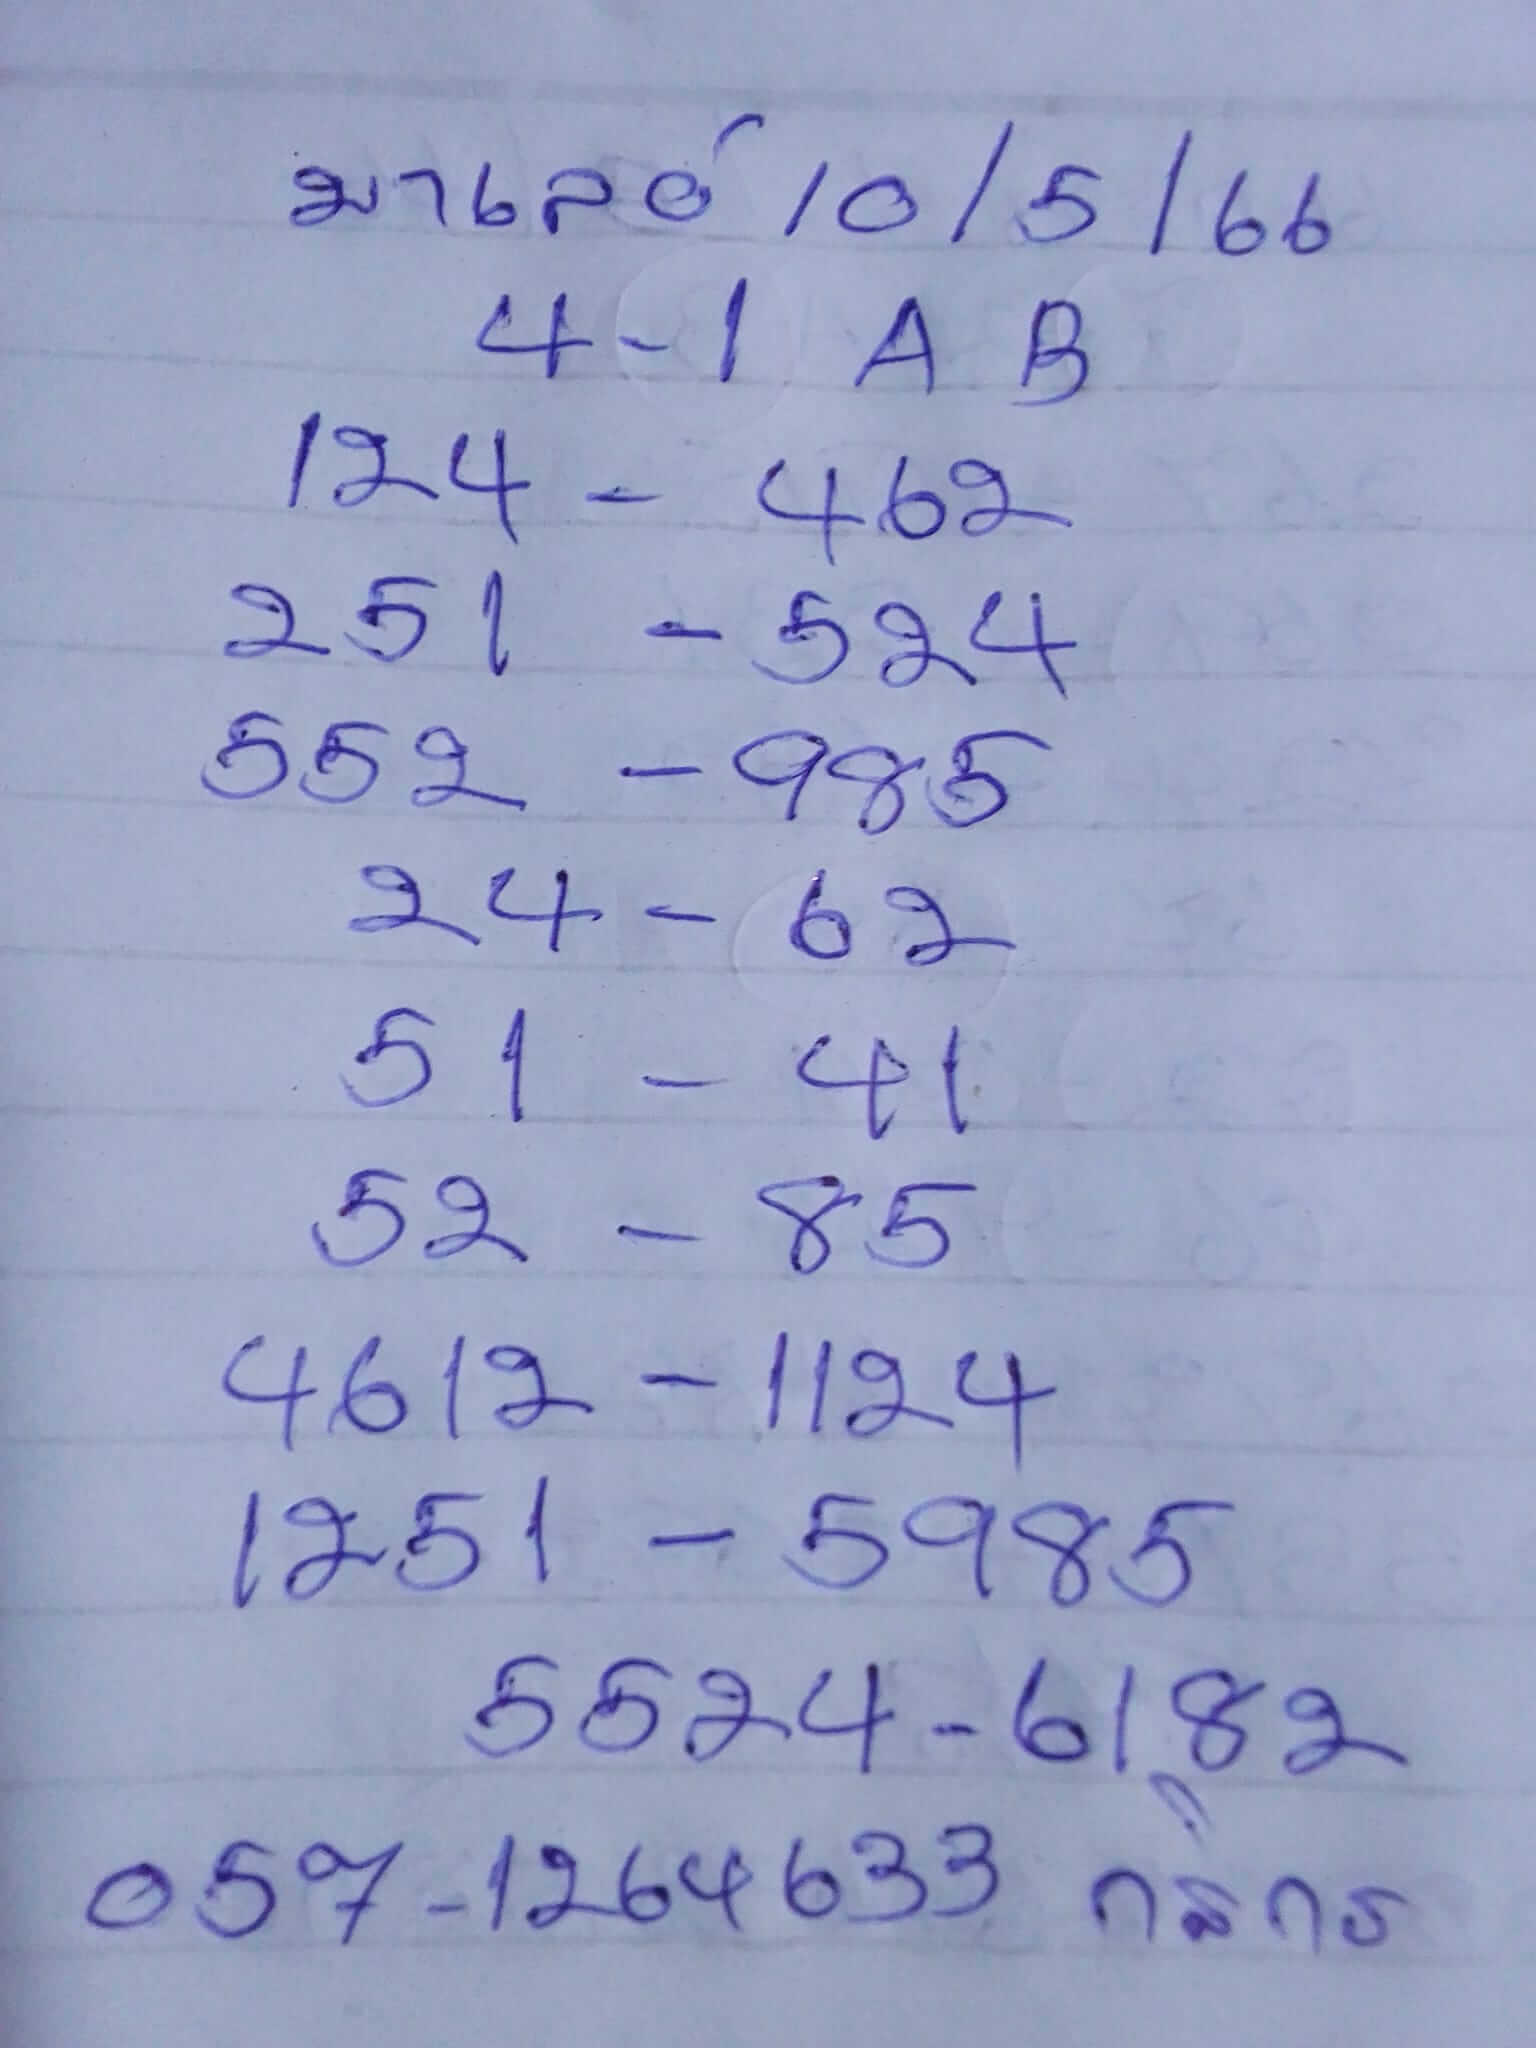 มาเลย์ 10/5/66
4-1 A B
124 - 462
251 - 524
552 - 985
24 - 62
51 - 41
52 - 85
4612 - 1124
1251 - 5985
5524 - 6182
057-1264633 กสิกร